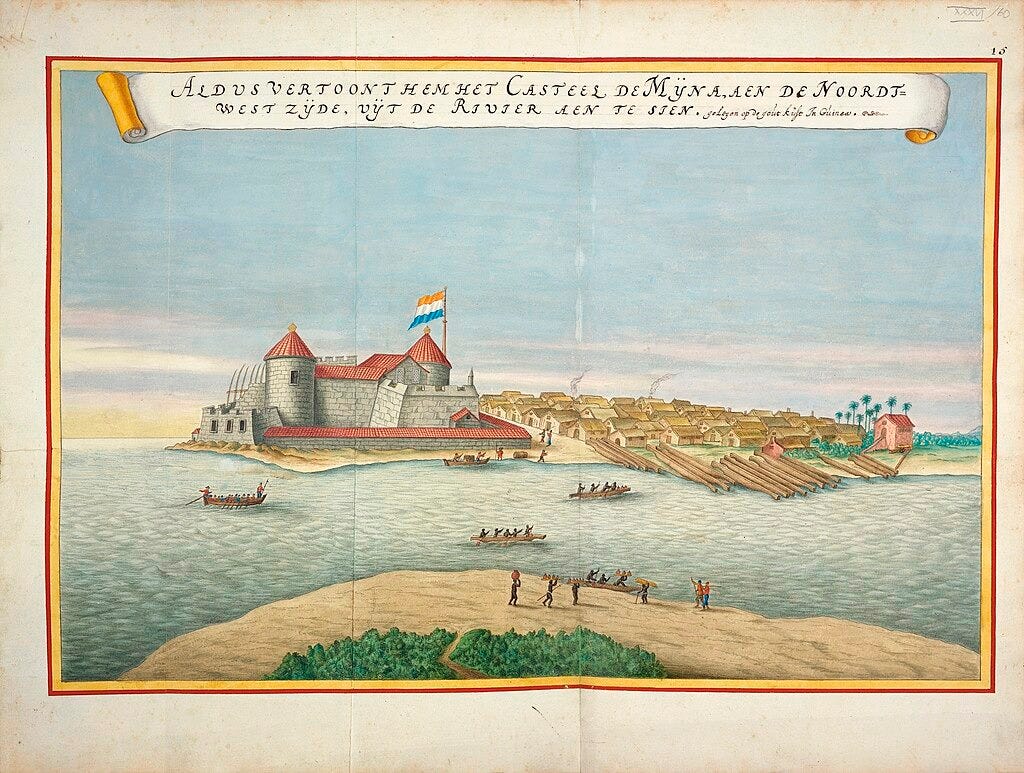 XXXVI /60
15
ALDVS VERTOONT HEM HET CASTEEL DE MŸNA, AEN DE NOORDT=
WEST ZŸDE, VŸT DE RIVIER AEN TE SIEN. gelegen op de gout kust In Guinea.